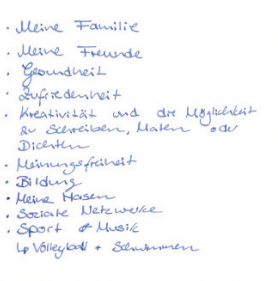 · Meine Familie
· Meine Freunde
· Gesundheit
· Zufriedenheit
· Kreativität und die Möglichkeit
zu Schreiben, Malen oder
Dichten
· Meinungsfreiheit
· Bildung
· Meine Hasen
· Soziale Netzwerke
· Sport & Musik
↳ Volleyball + Schwimmen